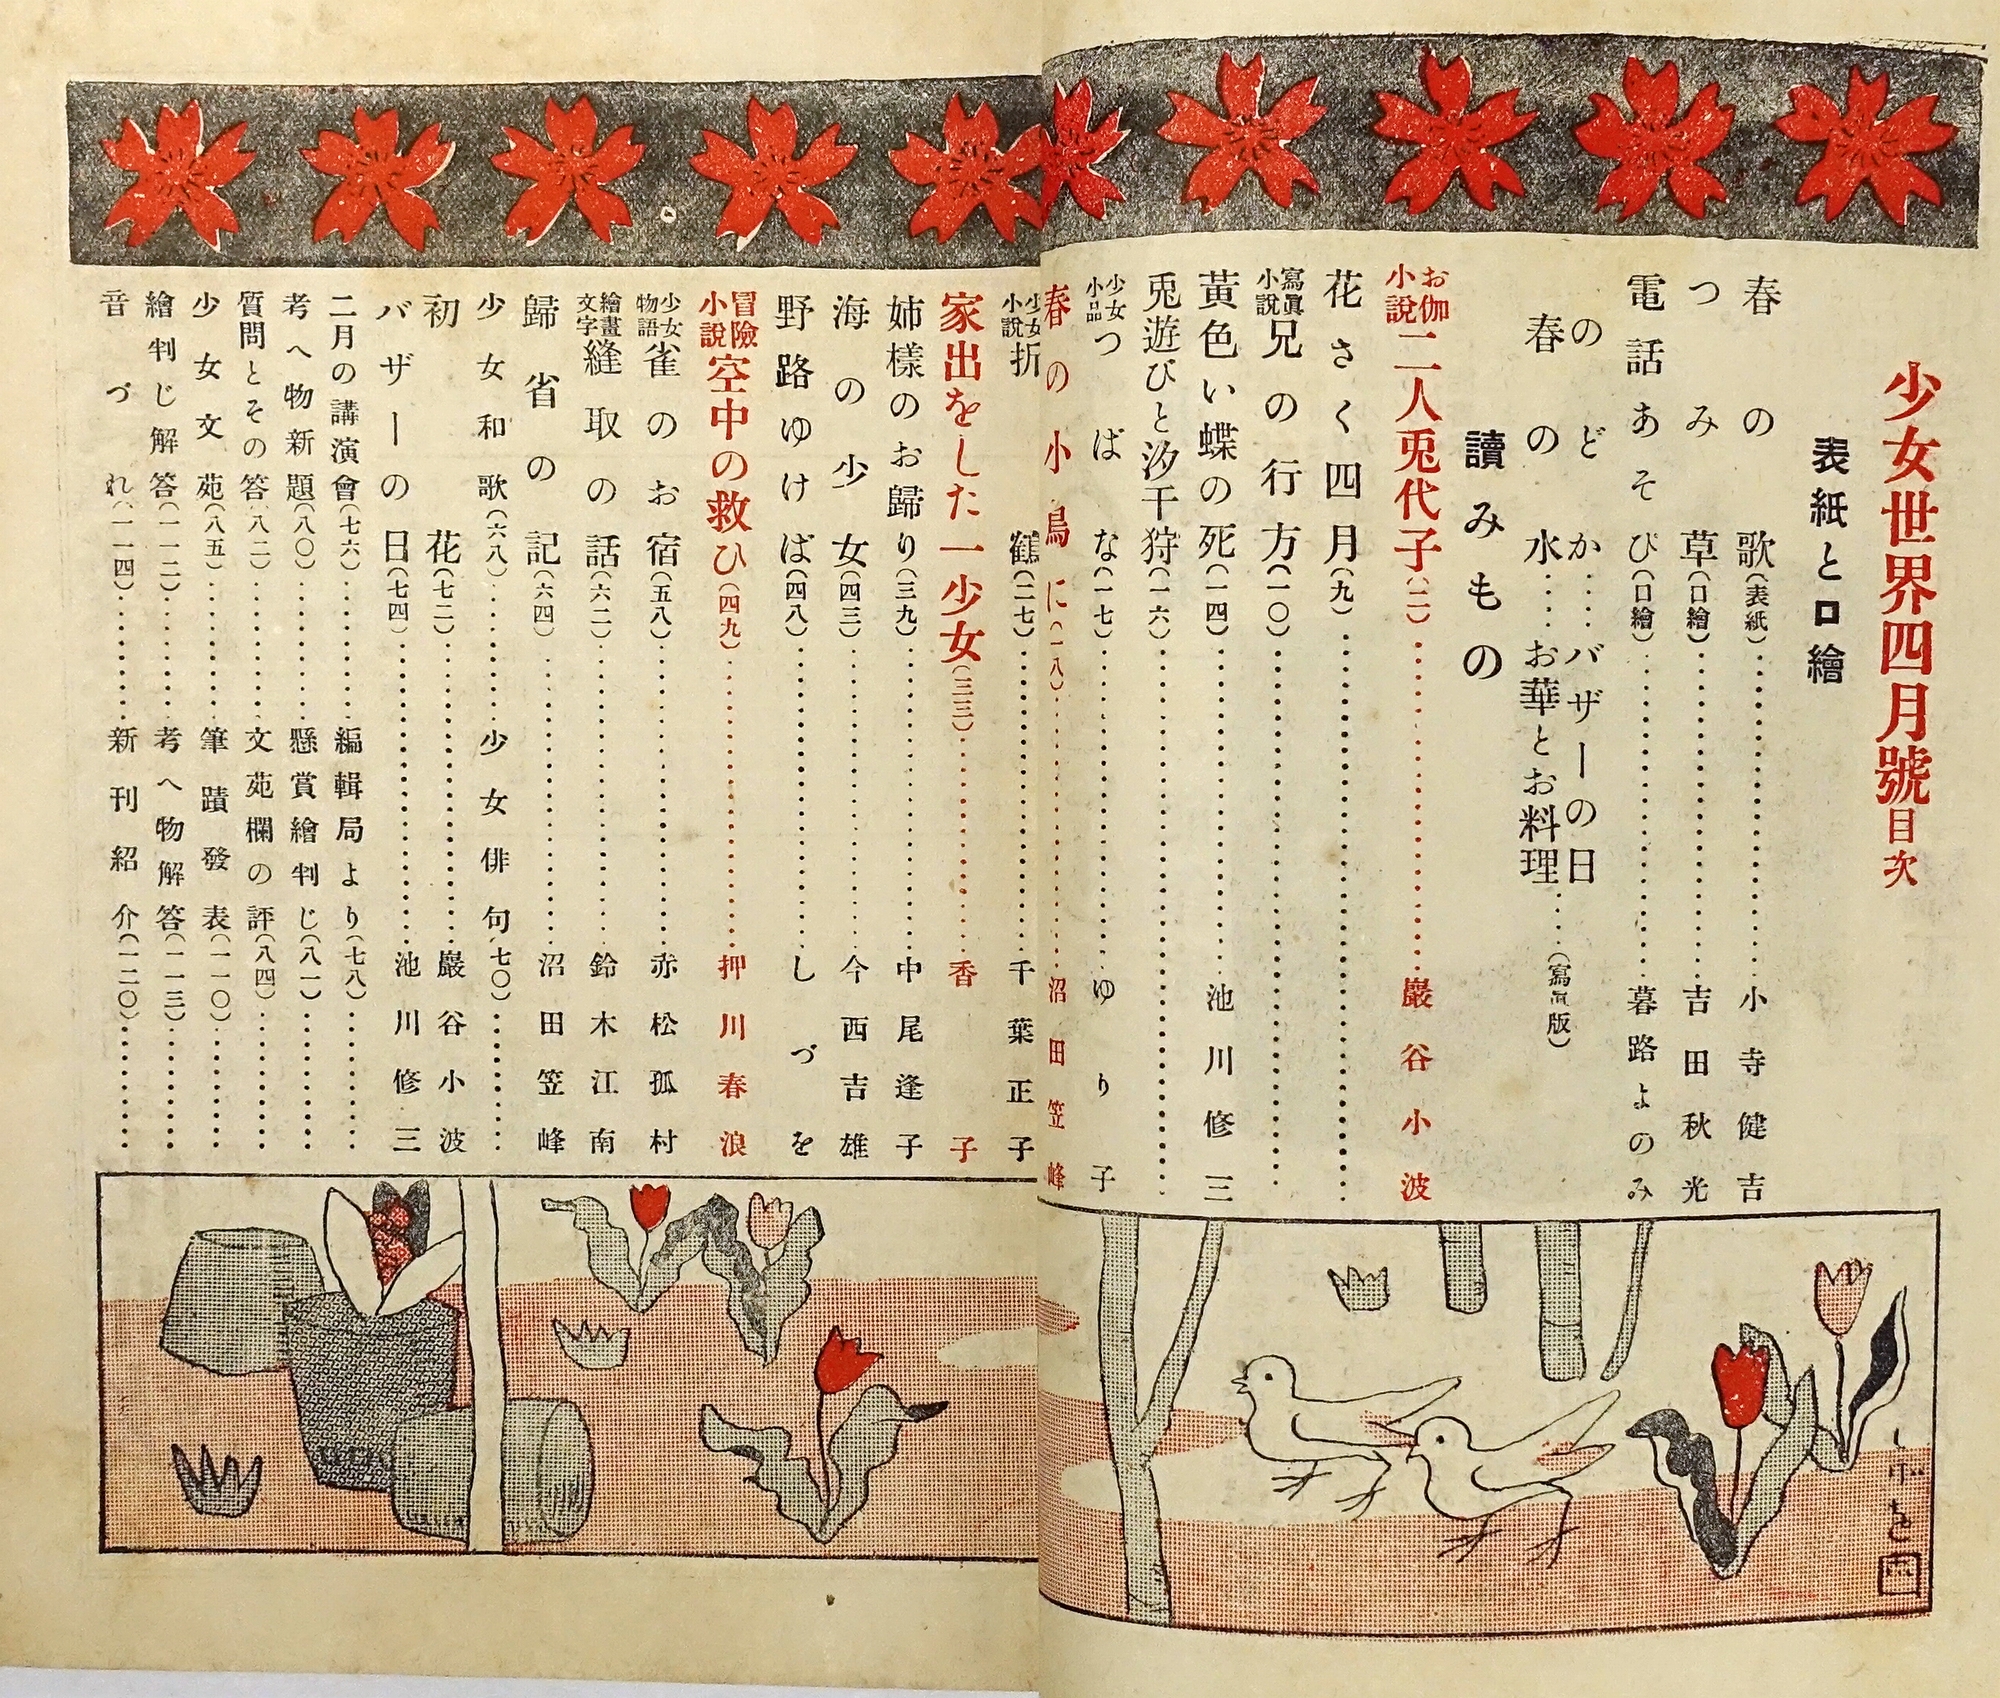 少女世界四月號目次
表紙と口繪
春の歌(表紙)小寺健吉
つみ草(口繪)吉田秋光
電話あそび(口繪)暮路よのみ
のどか バザーの日
春の水 お華とお料理(寫眞版)
讀みもの
お伽小説 二人兎代子(二)巖谷小波
花さく四月(九)
寫眞小説 兄の行方(一〇)
黃色い蝶の死(一四)池川修三
兎遊びと汐干狩(一六)
少女小品 つばな(一七)ゆり子
春の小鳥に(一八)沼田笠峰
少女小説 折鶴(二七)千葉正子
家出をした一少女(三三)香子
姉樣のお歸り(三九)中尾逢子
海の少女(四三)今西吉雄
野路ゆけば(四八)しづを
冒險小説 空中の救ひ(四九)押川春浪
少女物語 雀のお宿(五八)赤松孤村
繪畫文字 縫取の話(六二)鈴木江南
歸省の記(六四)沼田笠峰
少女和歌(六八)少女俳句(七〇)
初花(七二)巖谷小波
バザーの日(七四)池川修三
二月の講演會(七六)編輯局より(七八)
考へ物新題(八〇)懸賞繪判じ(八一)
質問とその答(八二)文苑欄の評(八四)
少女文苑(八五)筆蹟發表(一一〇)
繪判じ解答(一一二)考へ物解答(一一三)
音づれ(一一四)新刊紹介(一二〇)